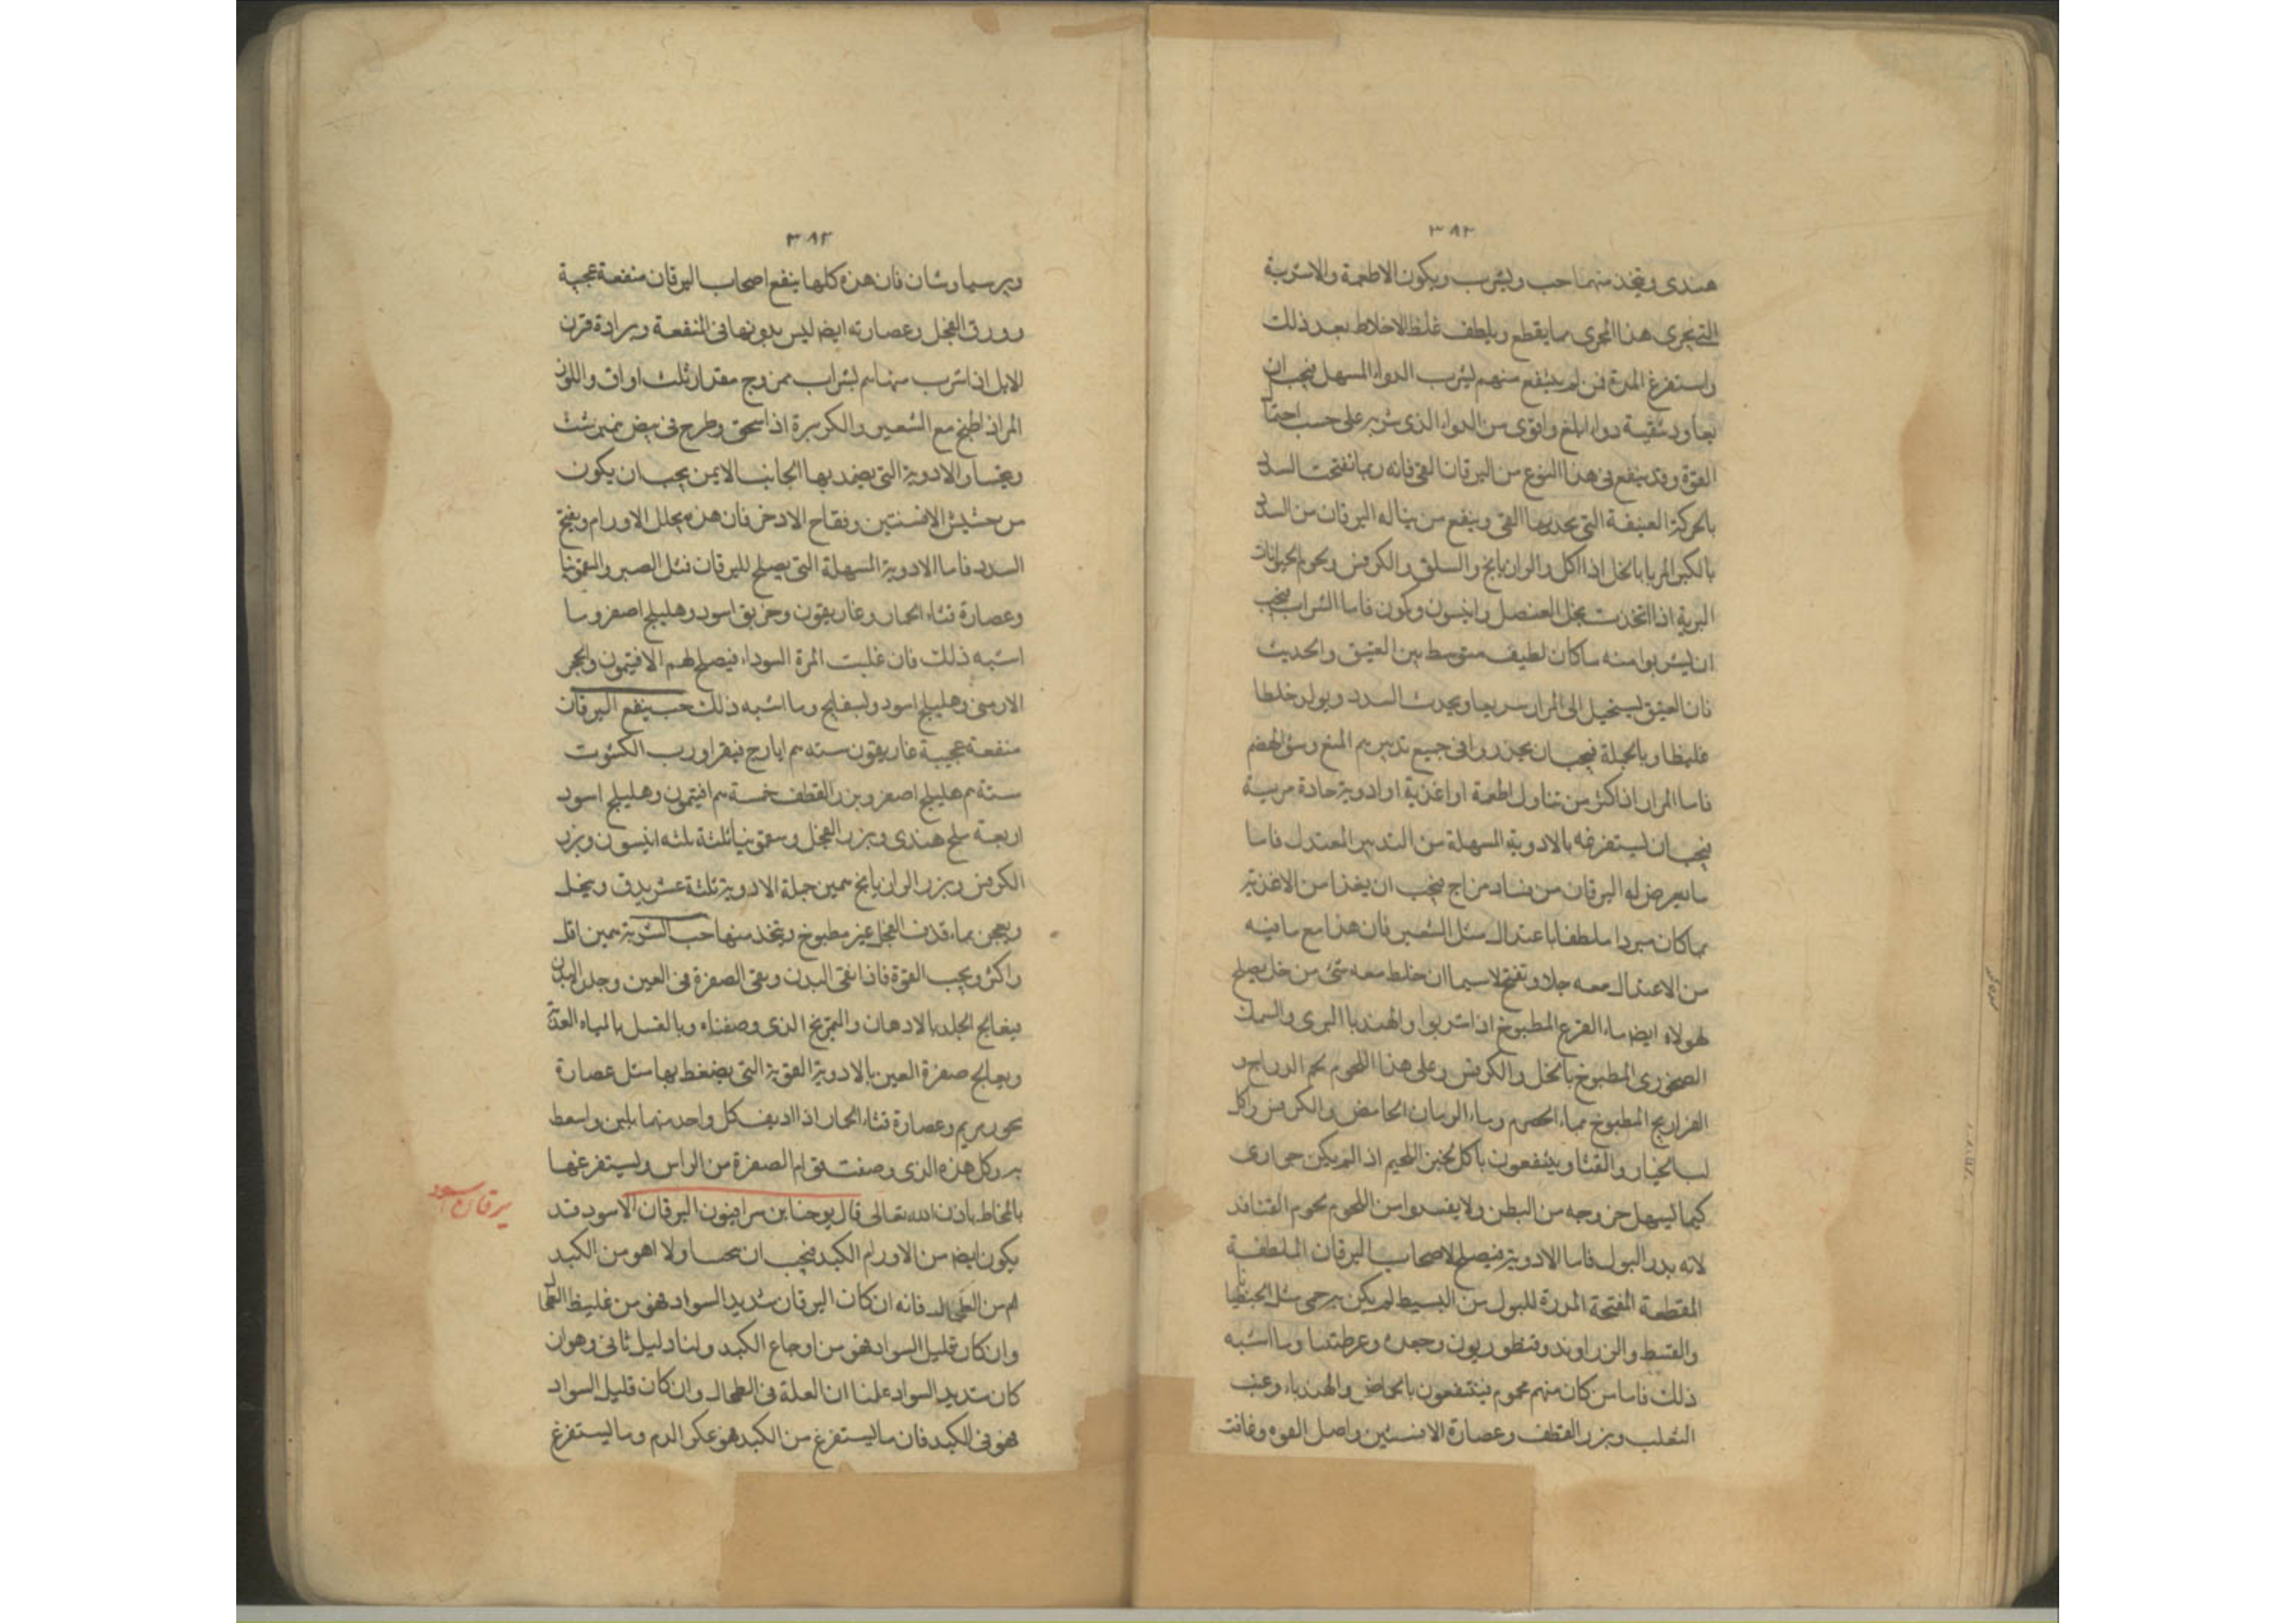 ٣٨٢
هندى ويتخذ منهما حب ويشرب ويكون الاطعمة والاشربة
التى تجرى هذا المجرى مما يقطع ويلطف غلظ الاخلاط بعد ذلك
واستفرغ المرة فمن لم ينتفع منهم بشرب الدواء المسهل فيجب ان
يعاود تنقيته دواء ابلغ واقوى من الدواء الذى شربه على حسب احتما
القوة وقد ينفع فى هذا النوع من اليرقان القى فانه ربما تفتحت السدد
بالحركة العنيفة التى يحدثها القى وينفع من يناله اليرقان من السدد
بالكبر المربا بالخل اذا اكل والرازيانج والسلق والكرفس ولحوم الحيوانات
البرية اذا اتخذت بخل العنصل وانيسون وكمون فاما الشراب فيجب
ان يشربوا منه ما كان لطيف متوسط بين العتيق والحديث
فان العتيق يستحيل الى المرار سريعا ويحدث السدد ويولد خلطا
غليظا وبالجملة فيجب ان يحذروا فى جميع تدبيرهم المنع وسؤ الهضم
فاما المرار اذا كثر من تناول اطعمة او اغذية او ادوية حادة مرية
فيجب ان يستفرغه بالادوية المسهلة من التدبير المعتدل فاما
ما يعرض له اليرقان من فساد مزاج فيجب ان يغذا من الاغذية
بما كان مبردا ملطفا باعتدال مثل الشعير فان هذا مع ما فيه
من الاعتدال معه جلا وتفتح لا سيما ان خلط معه شئ من خل يصلح
لهولاء ايضا ماء القرع المطبوخ اذا شربوا والهندبا البرى والسمك
الصخورى المطبوخ بالخل والكرفس وعلى هذا اللحوم لحم الدراج و
الفراريج المطبوخ بماء الحصرم وماء الرمان الحامض والكرفس واكل
لب الخيار والقثا وينتفعون باكل الخبز اللحيم اذا لم يكن حوارى
كيما يسهل خروجه من البطن ولا يفسدوا من اللحوم لحوم القنافد
لانه يدر البول فاما الادوية فيصلح لاصحاب اليرقان الملطفة
المقطعة المفتحة المدرة للبول من البسيط لم يكن به حمى مثل الجنطيانا
والقسط والزراوند وقنطوريون وجعده وعرطنيثا وما اشبه
ذلك فاما من كان منهم محموم فينتفعون بالحماض والهندباء وعنب
الثعلب وبزر القطف وعصارة الافسنتين واصل الفوه وغافت
٣٨٣
وبرسياوشان فان هذه كلها ينفع اصحاب اليرقان منفعة عجيبة
وورق الفجل وعصارته ايضا ليس بدونها فى المنفعة وبرادة قرن
الايل اذا شرب منها م بشراب ممزوج مقدار ثلث اواق واللوز
المر اذا طبخ مع الشعير والكزبرة اذا سحق وطرح فى بيض نميرشت
ويختار الادوية التى يضمد بها الجانب الايمن يجب ان يكون
من حشيش الافسنتين وفقاح الادخر فان هذه يحلل الاورام ويفتح
السدد فاما الادوية المسهلة التى يصلح لليرقان فمثل الصبر والسقمونيا
وعصارة قثاء الحمار وغاريقون وخربق اسود وهليلج اصفر وما
اشبه ذلك فان غلبت المرة السوداء فيصلح لهم الافتيمون والحجر
الارمنى وهليلج اسود وبسفايج وما اشبه ذلك حب ينفع اليرقان
منفعة عجيبة غاريقون سته م ايارج فيقرا ورب الكشوت
ستة م هليلج اصفر وبزر القطف خمسة م افتيمون وهليلج اسود
اربعة ملح هندى وبزر الفجل وسقمونيا ثلثة ثلثه انيسون وبزر
الكرفس وبزر الرازيانج همين جملة الادوية ثلثة عشر يدق وينخل
ويعجن بماء قدف الفجل غير مطبوخ ويتخذ منها حب الشربة همين اقل
واكثر وبحب القوة فاذا نقى البدن وبقى الصفرة فى العين وجلد البدن
فيعالج الجلد بالادهان والتمريخ الذى وصفناه وبالغسل بالمياه العذبة
ويعالج صفرة العين بالادوية القوية التى يضغط بها مثل عصارة
بخور مريم وعصارة قثاء الحمار اذا اديف كل واحد منهما بلبن واسعط
به وكل هذه الذى وصفت تقوام الصفرة من الراس ويستفرغها
بالمخاط باذن الله تعالى قال يوحنا بن سرافيون اليرقان الاسود قد
يرقان اسود
يكون ايضا من الاورام الكبد فيجب ان يحسا ولا اهو من الكبد
ام من الطحال فانه ان كان اليرقان شديد السواد فهو من غليظ الطحال
وان كان قليل السواد فهو من اوجاع الكبد ولنا دليل ثانى وهو ان
كان شديد السواد علمنا ان العلة فى الطحال وان كان قليل السواد
فهو فى الكبد فان ما يستفرغ من الكبد هو عكر الدم وما يستفرغ